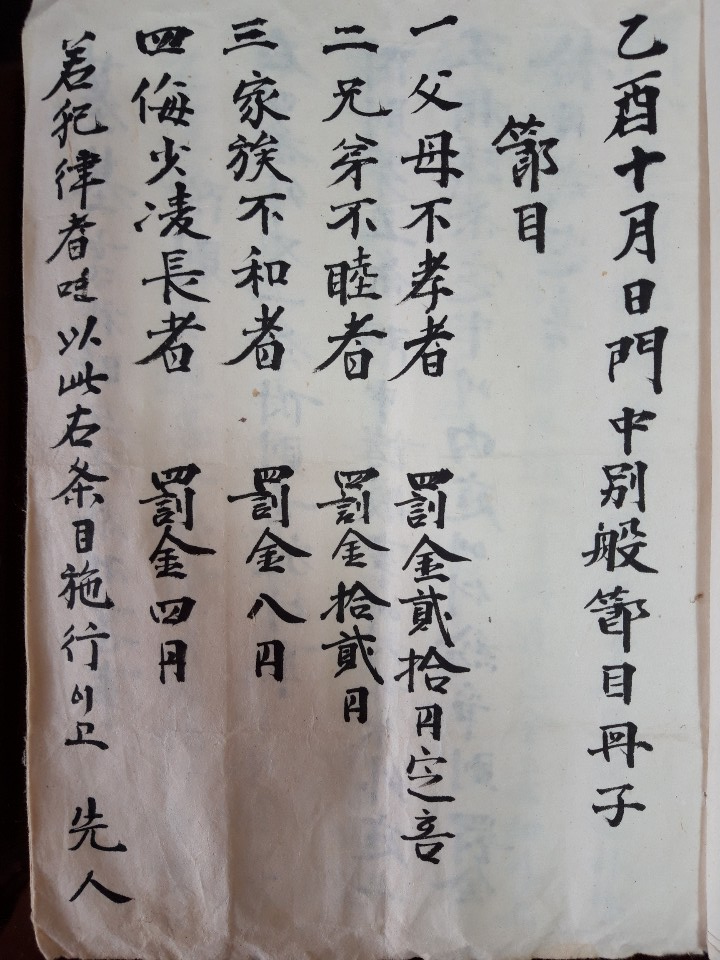 乙酉十月日門中別般節目冊子
節目
一父母不孝者 罰金貳拾円定言
二兄弟不睦者 罰金拾貳円
三家族不和者 罰金八円
四侮少凌長者 罰金四円
若犯律者는以此右条目施行이고 先人